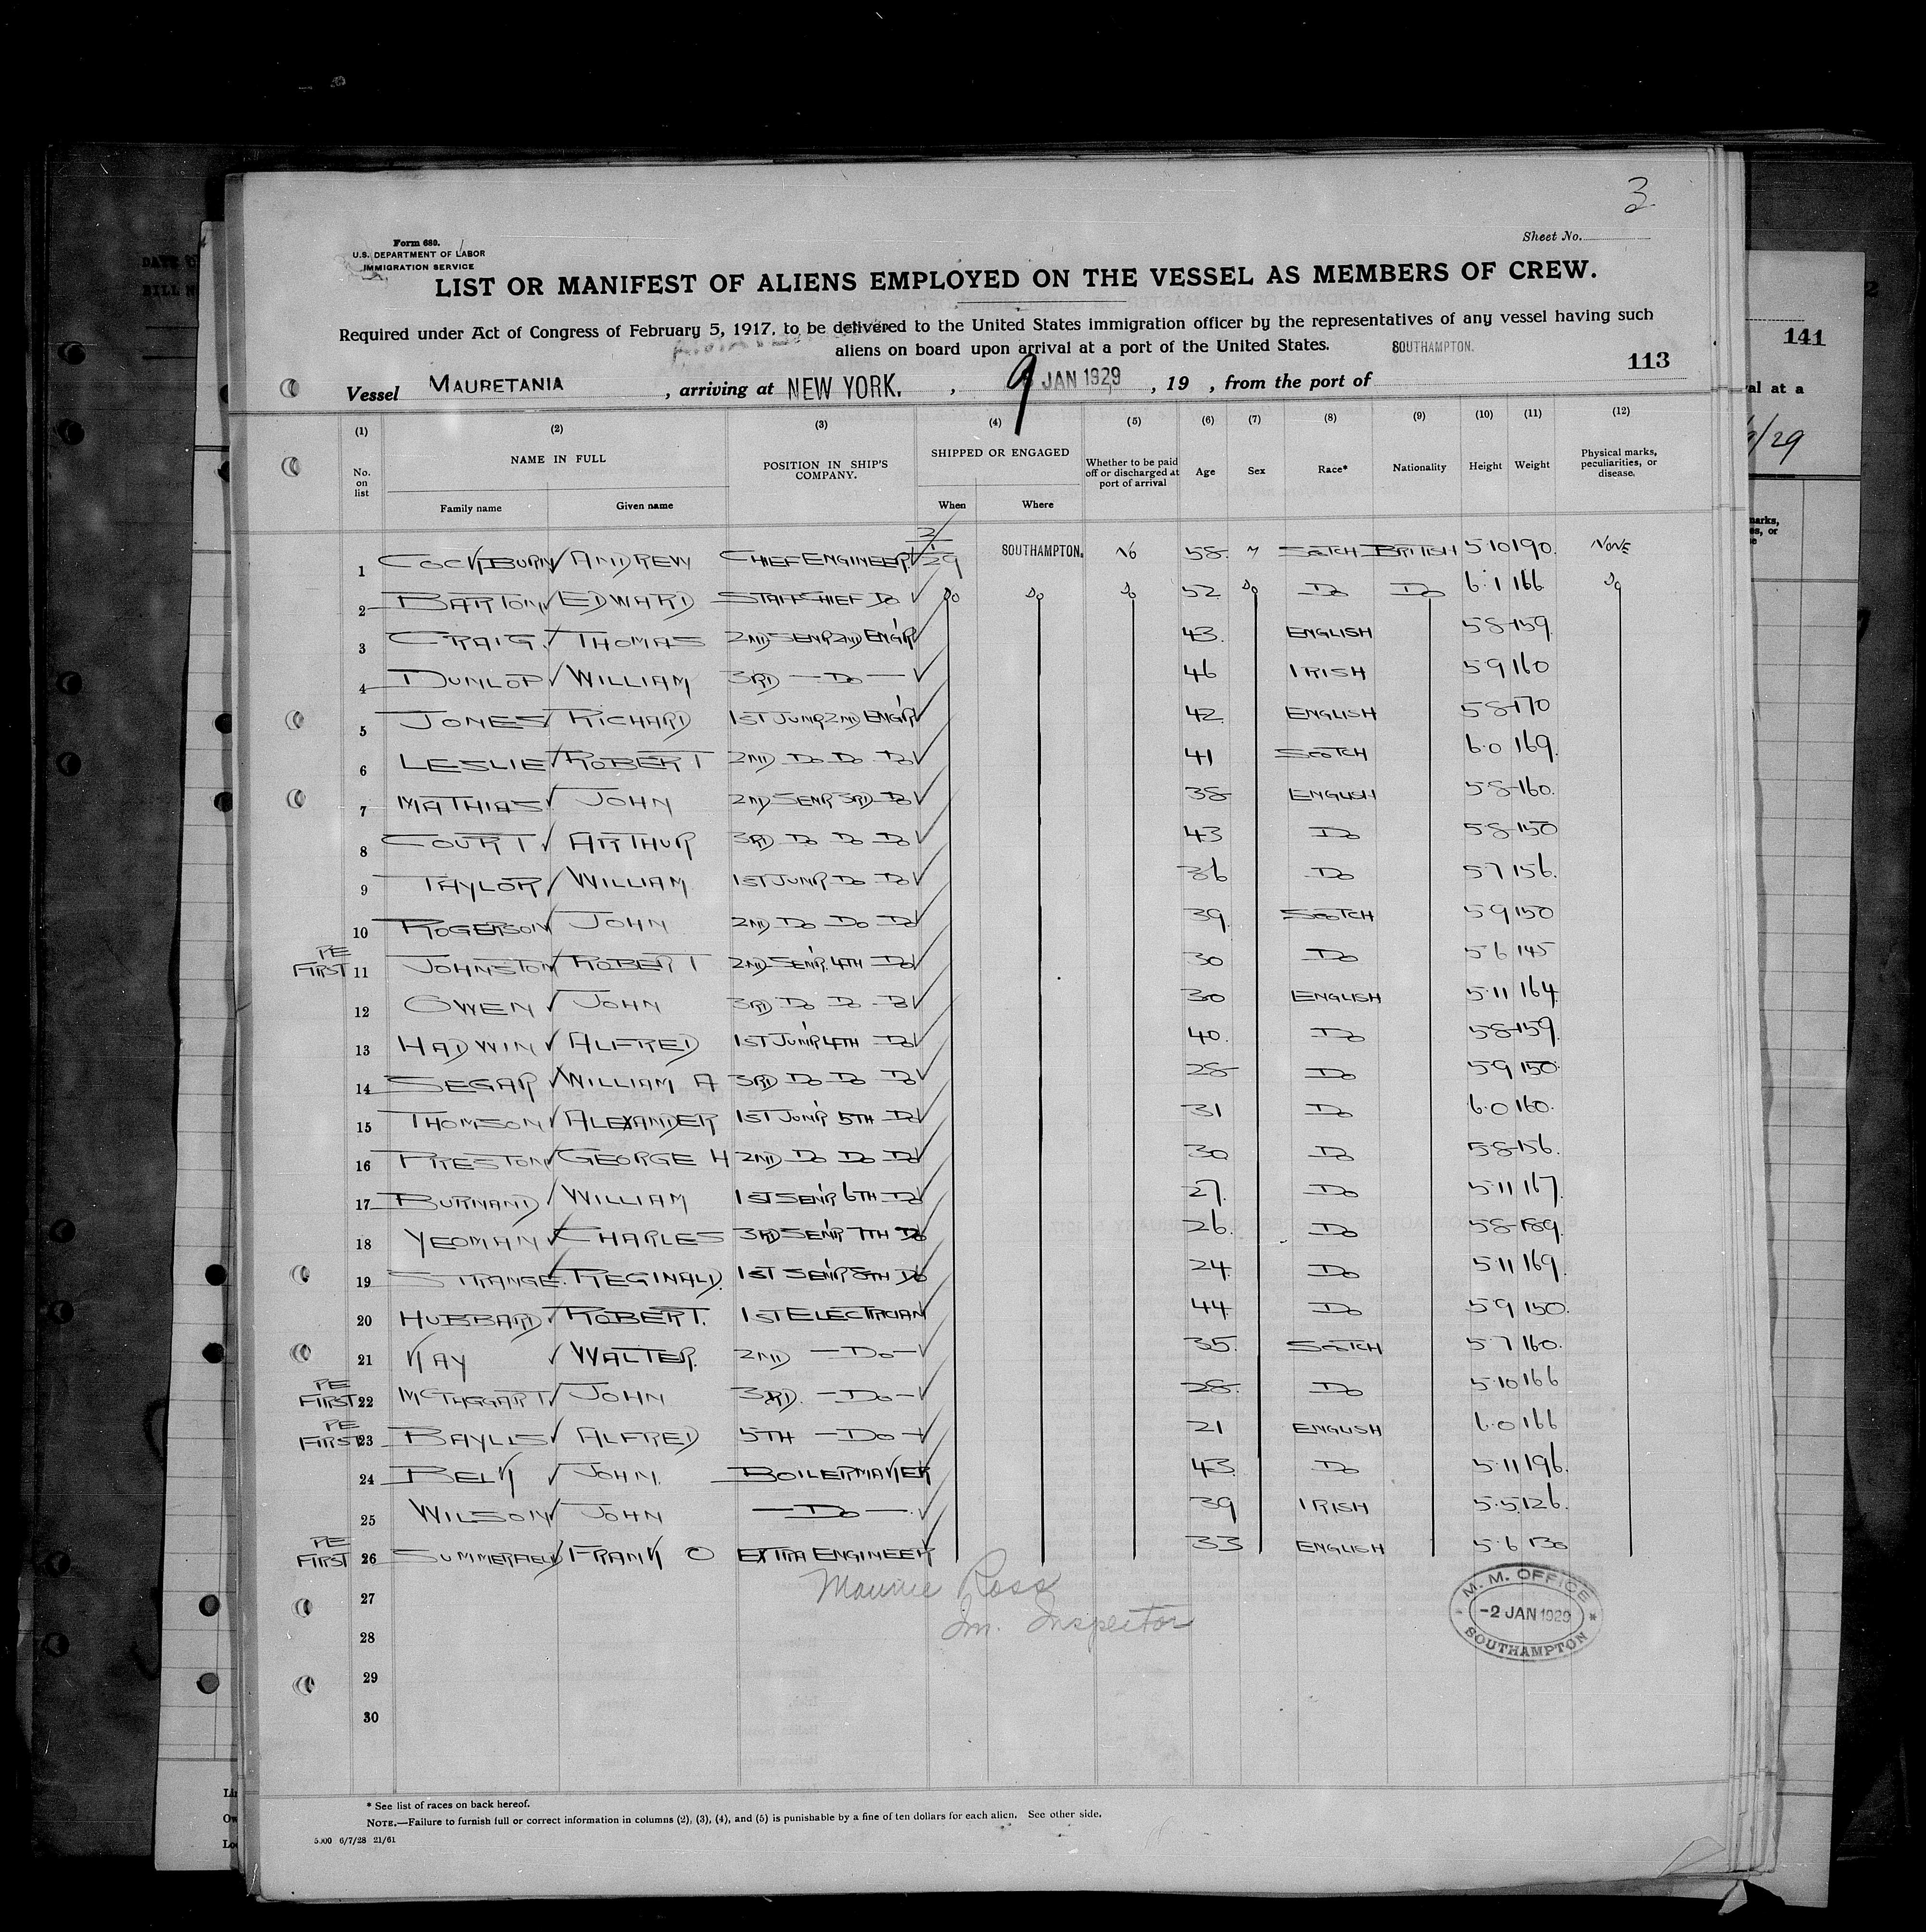 3
Sheet No.
Form 680.
U.S. DEPARTMENT OF LABOR
IMMIGRATION SERVICE
LIST OR MANIFEST OF ALIENS EMPLOYED ON THE VESSEL AS MEMBERS OF CREW.
Required under Act of Congress of February 5, 1917, to be delivered to the United States immigration officer by the representatives of any vessel having such
aliens on board upon arrival at a port of the United States. SOUTHAMPTON.
113
141
Vessel MAURETANIA , arriving at NEW YORK. , 9 JAN 1929 , 19 , from the port of
al at a
/29
(1) (2) (3) (4) (5) (6) (7) (8) (9) (10) (11) (12)
No. on list NAME IN FULL POSITION IN SHIP'S COMPANY. SHIPPED OR ENGAGED Whether to be paid off or discharged at port of arrival Age Sex Race* Nationality Height Weight Physical marks, peculiarities, or disease.
Family name Given name When Where
1 COCKBURN ANDREW CHIEF ENGINEER 2/1/29 SOUTHAMPTON. No 58 M SCOTCH BRITISH 5·10 190. NONE
2 BARTON EDWARD STAFF CHIEF DO DO DO DO 52 DO DO DO 6·1 166 DO
3 CRAIG. THOMAS 2ND SEN'R 2ND ENG'R 43. ENGLISH 5·8 159.
4 DUNLOP WILLIAM 3RD — DO — 46 IRISH 5·9 160
5 JONES RICHARD 1ST JUN'R 2ND ENG'R 42. ENGLISH 5·8 170
6 LESLIE ROBERT 2ND DO DO DO 41 SCOTCH 6·0 169.
7 MATHIAS JOHN 2ND SEN'R 3RD DO 38 ENGLISH 5·8 160.
8 COURT ARTHUR 3RD DO DO DO 43 DO 5·8 150
9 TAYLOR WILLIAM 1ST JUN'R DO DO 36 DO 5·7 156.
10 ROGERSON JOHN 2ND DO DO DO 39. SCOTCH 5·9 150
PE FIRST 11 JOHNSTON ROBERT 2ND SEN'R. 4TH DO 30 DO 5·6 145
12 OWEN JOHN 3RD DO DO DO 30 ENGLISH 5·11 164.
13 HADWIN ALFRED 1ST JUN'R 4TH DO 40. DO 5·8 159.
14 SEGAR WILLIAM A 3RD DO DO DO 28 DO 5·9 150.
15 THOMSON ALEXANDER 1ST JUN'R 5TH DO 31 DO 6·0 160.
16 PRESTON GEORGE H 2ND DO DO DO 30 DO 5·8 156.
17 BURNAND WILLIAM 1ST SEN'R 6TH DO 27. DO 5·11 167.
18 YEOMAN CHARLES 3RD SEN'R 7TH DO 26. DO 5·8 189.
19 STRANGE. REGINALD. 1ST SEN'R 8TH DO 24. DO 5·11 169.
20 HUBBARD ROBERT. 1ST ELECTRICIAN 44. DO 5·9 150.
21 KAY WALTER. 2ND — DO — 35. SCOTCH 5·7 160.
PE FIRST 22 McTAGGART JOHN 3RD. — DO — 28. DO 5·10 166
PE FIRST 23 BAYLIS ALFRED 5TH — DO — 21 ENGLISH 6·0 166
24 BELK JOHN. BOILERMAKER 43. DO 5·11 196.
25 WILSON JOHN — DO — 39 IRISH 5·5 126.
PE FIRST 26 SUMMERFIELD FRANK O EXTRA ENGINEER 33 ENGLISH 5·6 130
27
28
29
30
Maurice Ross
Im. Inspector
M. M. OFFICE
-2 JAN 1929
SOUTHAMPTON
* See list of races on back hereof.
NOTE.—Failure to furnish full or correct information in columns (2), (3), (4), and (5) is punishable by a fine of ten dollars for each alien. See other side.
5000 6/7/28 21/61